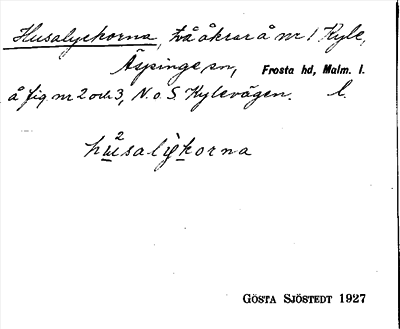 Husalyckorna, två åkrar å nr 1 Kyle,
Äspinge sn, Frosta hd, Malm. l.
å fig nr 2 och 3, N. o S. Kylevägen. l.
hu²salỳkorna
GÖSTA SJÖSTEDT 1927